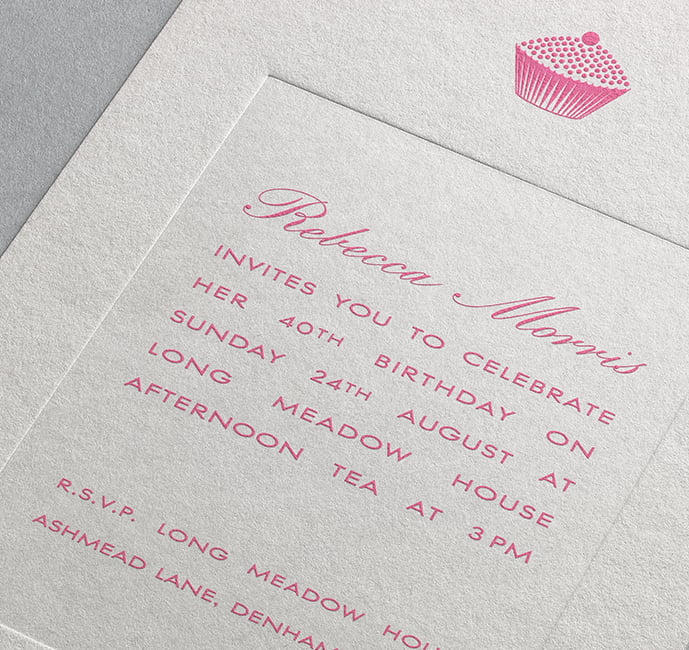 Rebecca Morris
INVITES YOU TO CELEBRATE
HER 40TH BIRTHDAY ON
SUNDAY 24TH AUGUST AT
LONG MEADOW HOUSE
AFTERNOON TEA AT 3PM
R.S.V.P. LONG MEADOW
ASHMEAD LANE,